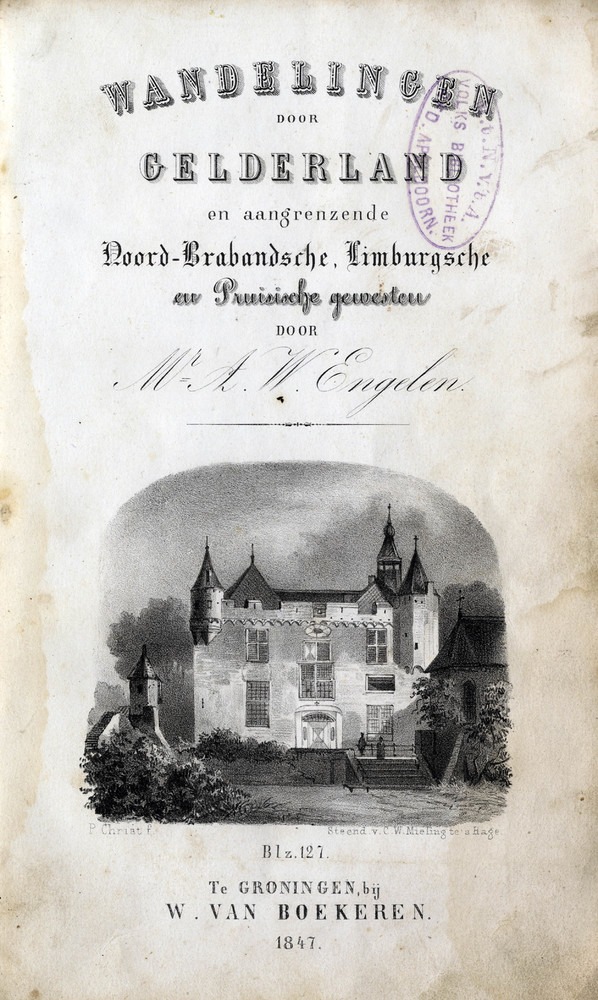 WANDELINGEN
DOOR
GELDERLAND
en aangrenzende
Noord-Brabandsche, Limburgsche
en Pruisische gewesten
DOOR
Mr. A. W. Engelen.
N.V.t.A.
VOLKS BIBLIOTHEEK
APELDOORN.
P. Christ f.
Steend. v. C. W. Mieling te 's Hage.
Blz. 127.
Te GRONINGEN, bij
W. VAN BOEKEREN.
1847.